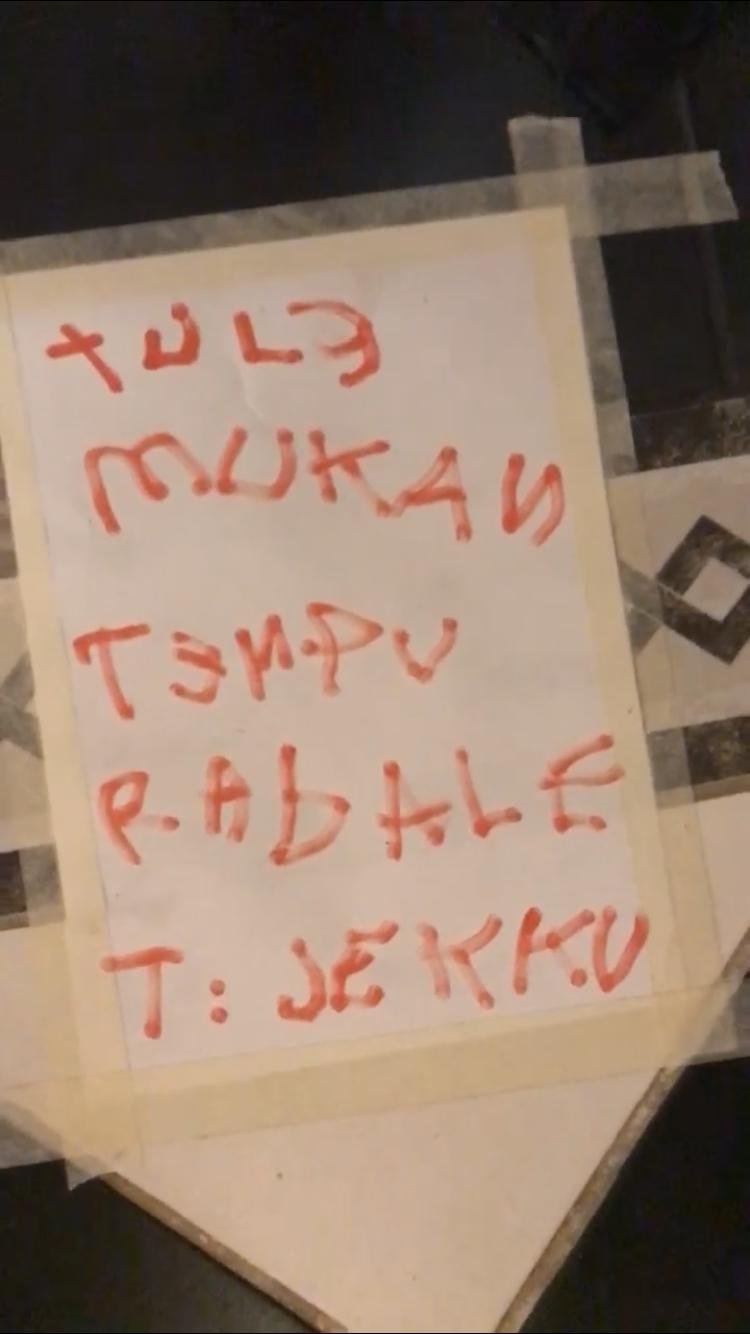 TULE
MUKAN
TEMPU
RADALE
T: JEKKU